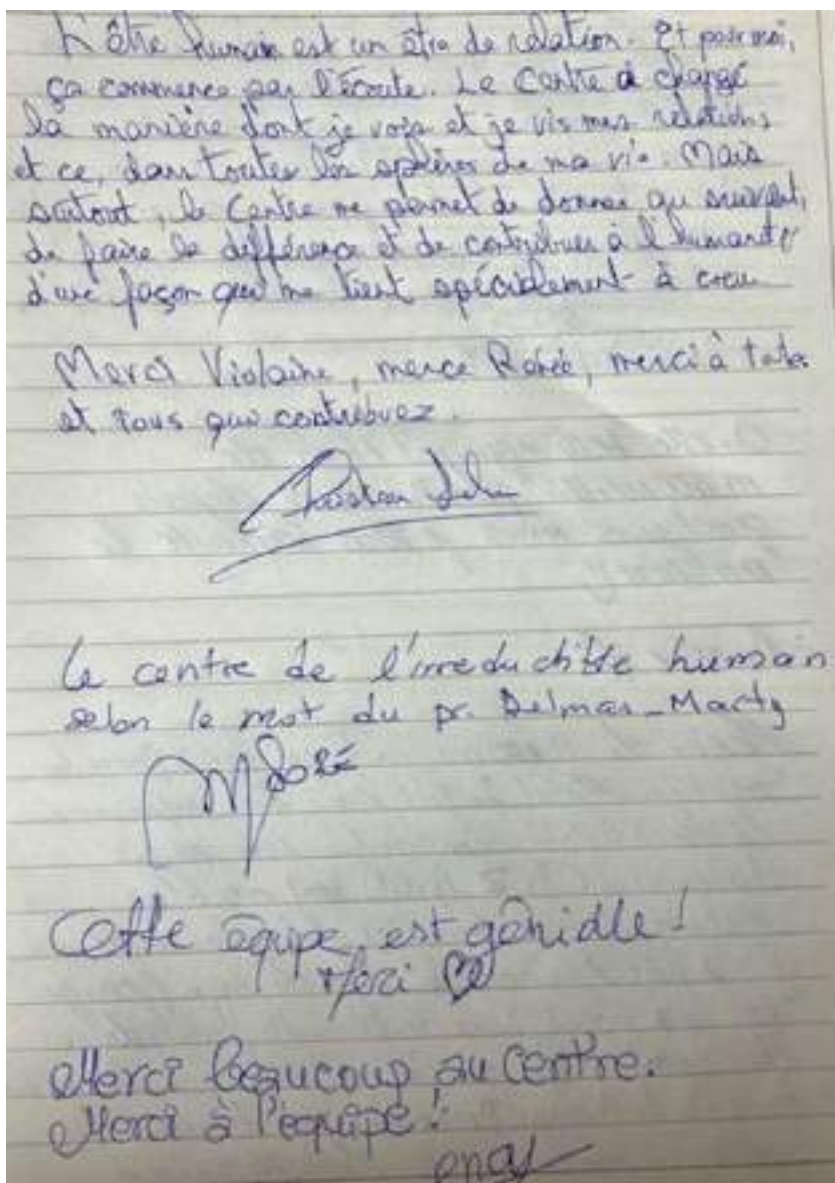 L'être humain est un être de relation. Et pour moi,
ça commence par l'écoute. Le Centre a changé
la manière dont je vois et je vis mes relations
et ce, dans toutes les sphères de ma vie. Mais
surtout, le Centre me permet de donner au suivant,
de faire la différence et de contribuer à l'humanité
d'une façon qui me tient spécialement à coeur
Merci Violaine, merci Renée, merci à toutes
et tous qui contribuez.
Le centre de l'irreductible humain
selon le mot du pr. Delmas-Marty
Cette équipe est géniale!
Merci
Merci beaucoup au Centre.
Merci à l'équipe!